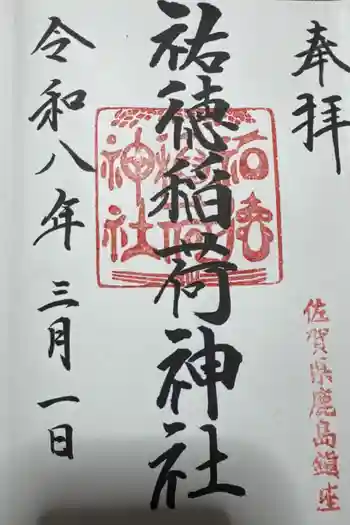 奉拝
佐賀県鹿島鎮座
祐徳稲荷神社
祐徳稲荷神社
令和八年三月一日